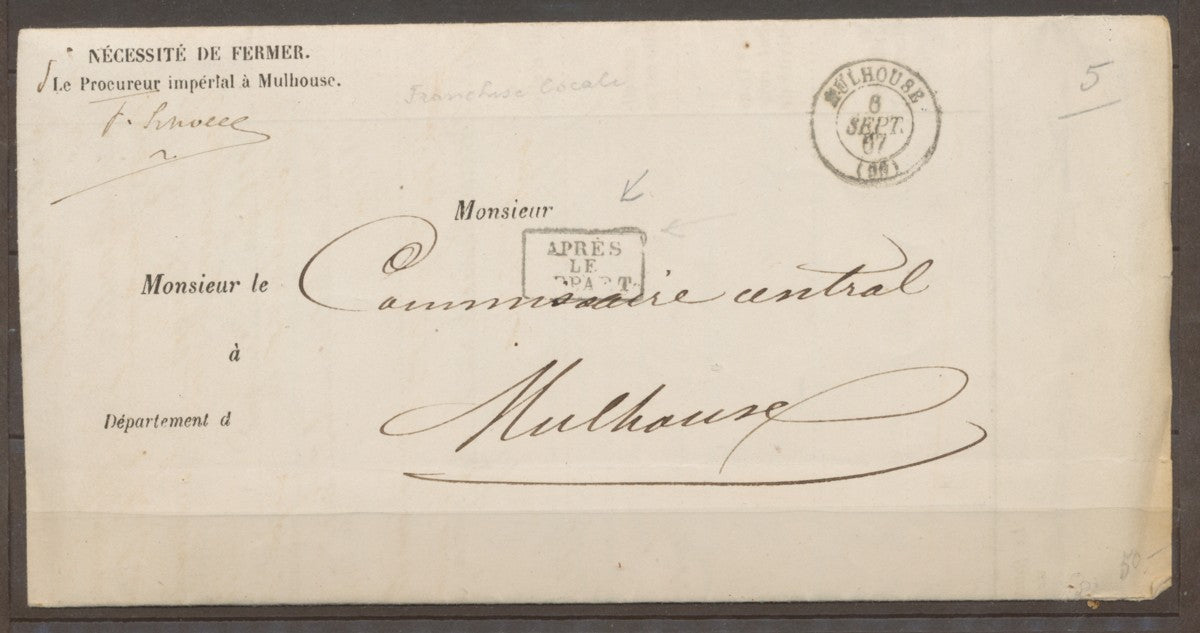 NÉCESSITÉ DE FERMER.
Le Procureur impérial à Mulhouse.
Franchise Locale
MULHOUSE
8
SEPT.
67
(66)
5
Monsieur
APRÈS
LE
DÉPART
Monsieur le Commissaire central
à
Mulhouse
Département d
50-